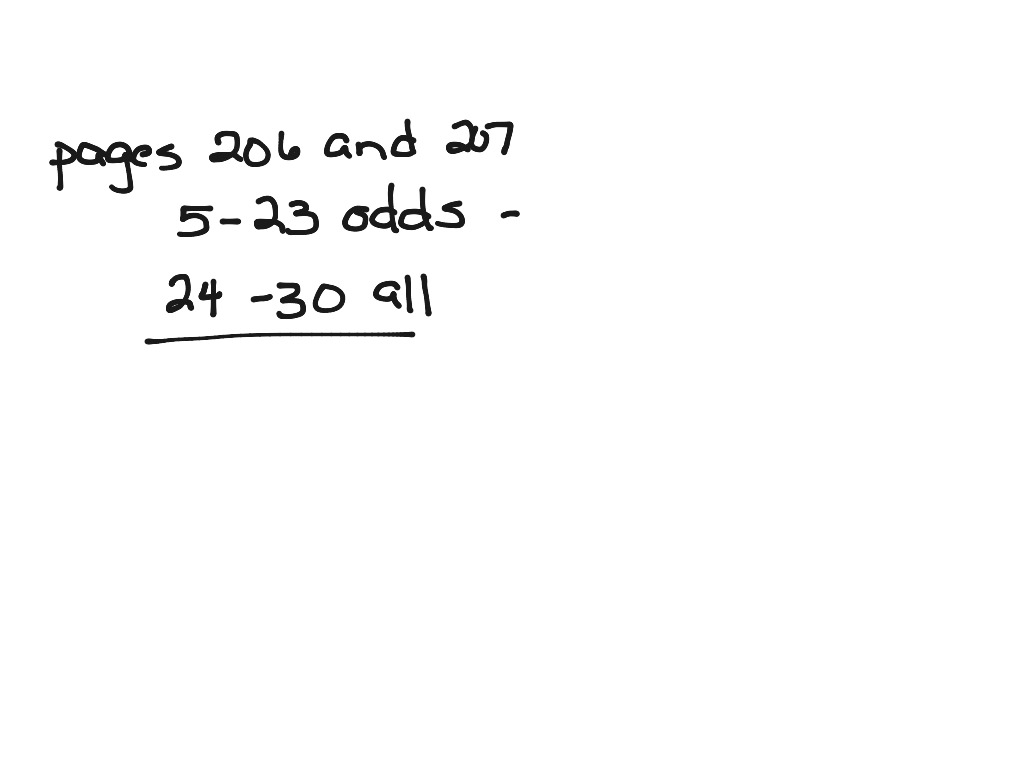 pages 206 and 207
5-23 odds -
24 -30 all